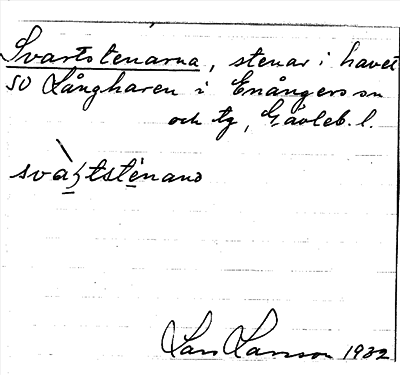 Svartstenarna, stenar i havet
SO Långharen i Enångers sn
och tg, Gävleb. l.
svàɽtsténanɒ
Lars Larsson 1932